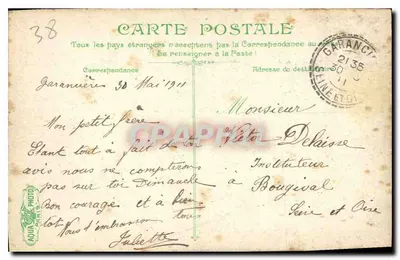 38
CARTE POSTALE
Tous les pays étrangers n'acceptent pas la Correspondance au
se renseigner à la Poste!
Correspondance
Adresse du destinataire
GARANCI
21 35
30
11
SEINE ET OI
Garancières 30 Mai 1911
Mon petit frère
Etant tout à fait de ton
avis nous ne compterons
pas sur toi Dimanche
Bon courage et à bien
tôt Nous t'embrassons tous
Juliette
Monsieur
Delaisse
Instituteur
à Bougival
Seine et Oise
AQUA PHOTO
PARIS
CPAPHIL